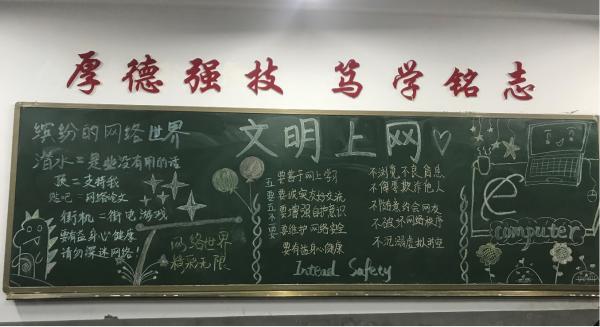 厚德强技 笃学铭志
缤纷的网络世界
潜水=是些没有用的话
顶=支持我
贴吧=网络论文
街机=街电游戏
要有益身心健康
请勿深迷网络!
网络世界
精彩无限
文明上网
五要五不要
要善于网上学习
要诚实友好交流
要增强自护意识
要维护网络安全
要有益身心健康
不浏览不良信息
不侮辱欺诈他人
不随意约会网友
不破坏网络秩序
不沉溺虚拟时空
Intead Safety
e
computer